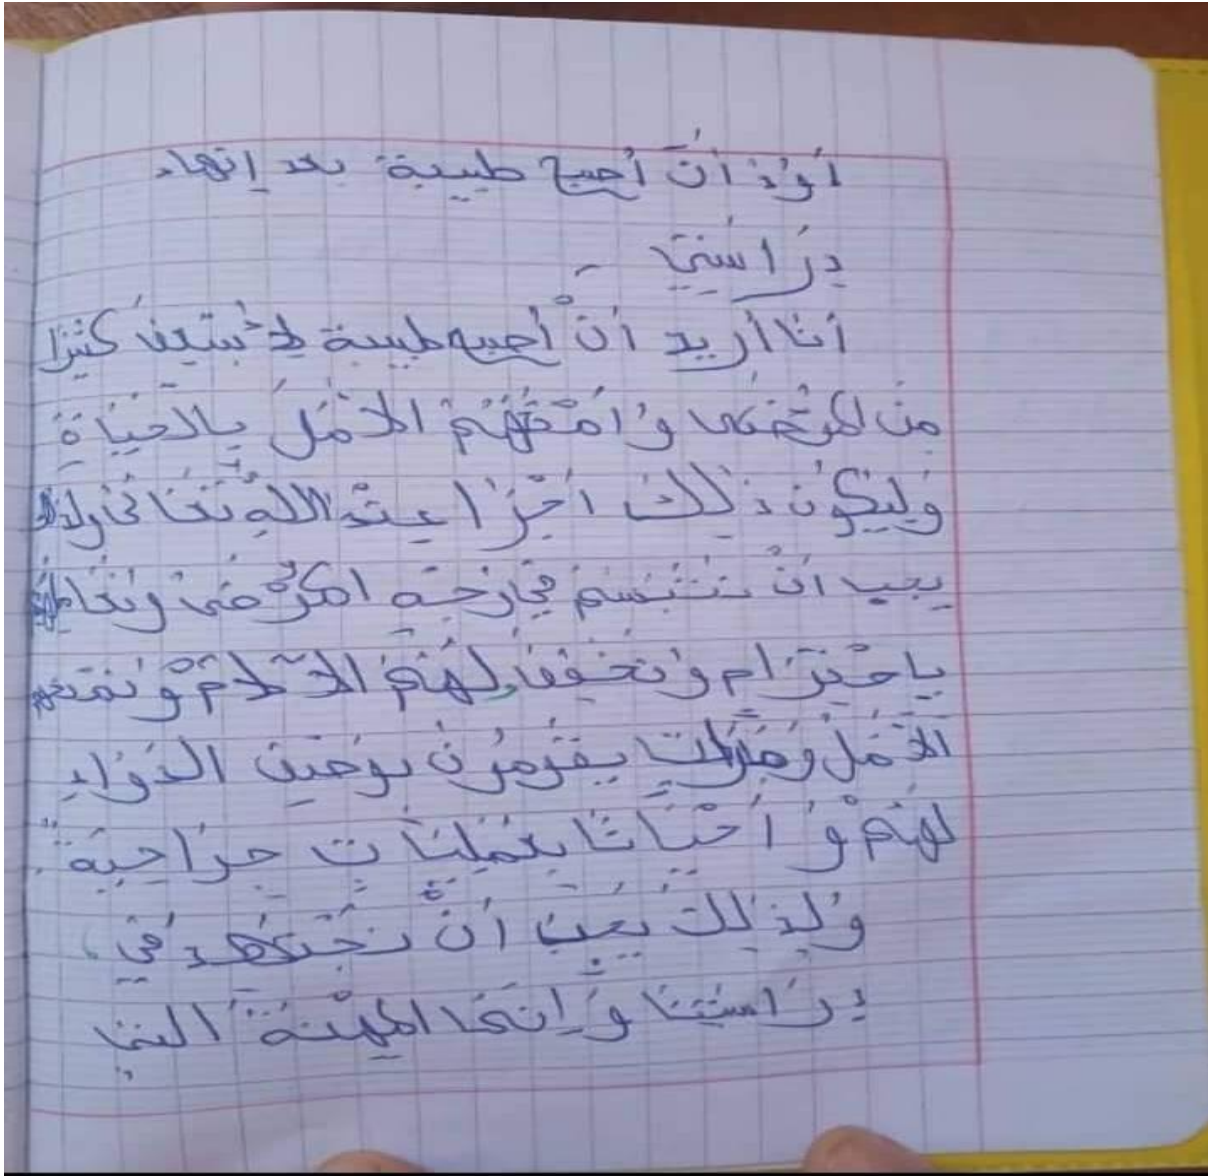 أود أن أصبح طبيبة بعد إنهاء
دراستي -
أنا أريد أن أصبح طبيبة كثيرا
من المرضى وأمنحهم الأمل بالحياة
وليكون ذلك أجرا عند الله تعالى
يجب أن نبتسم في وجه المرضى
باحترام ونخفف لهم الآلام
الأمل يقومون بوصف الدواء
لهم وأحيانا بعمليات جراحية.
ولذلك يجب أن نجتهد في
دراستنا المهنة التي